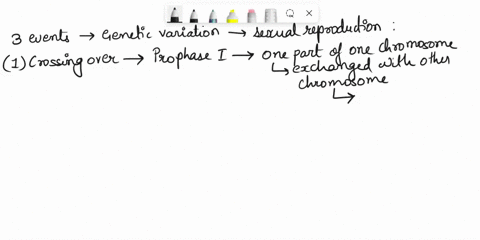 3 events → Genetic variation → sexual reproduction :
(1) Crossing over → Prophase I → one part of one chromosome
↳ exchanged with other
chromosome
↳